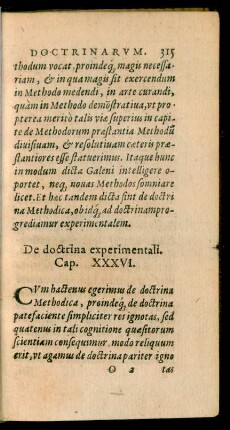 DOCTRINARVM. 315
thodum vocat, proindeq́; magis necessa-
riam, & in qua magis sit exercendum
in Methodo medendi, in arte curandi,
quàm in Methodo demõstratiua, vt pro-
pterea meritò talis viæ superius in capi-
te de Methodorum præstantia Methodũ
diuisuam, & resolutiuam cæteris præ-
stantiores esse statuerimus. Itaque hunc
in modum dicta Galeni intelligere o-
portet, neq; nouas Methodos somniare
licet. Et hæc tandem dicta sint de doctri
na Methodica, ob idq́; ad doctrinam pro-
grediamur experimentalem.
De doctrina experimentali.
Cap. XXXVI.
CVm hactenus egerimus de doctrina
Methodica, proindeq́; de doctrina
patefaciente simpliciter res ignotas, sed
quatenus in tali cognitione quæsitorum
scientiam consequimur, modo reliquum
erit, vt agamus de doctrina pariter igno
O 2 tas